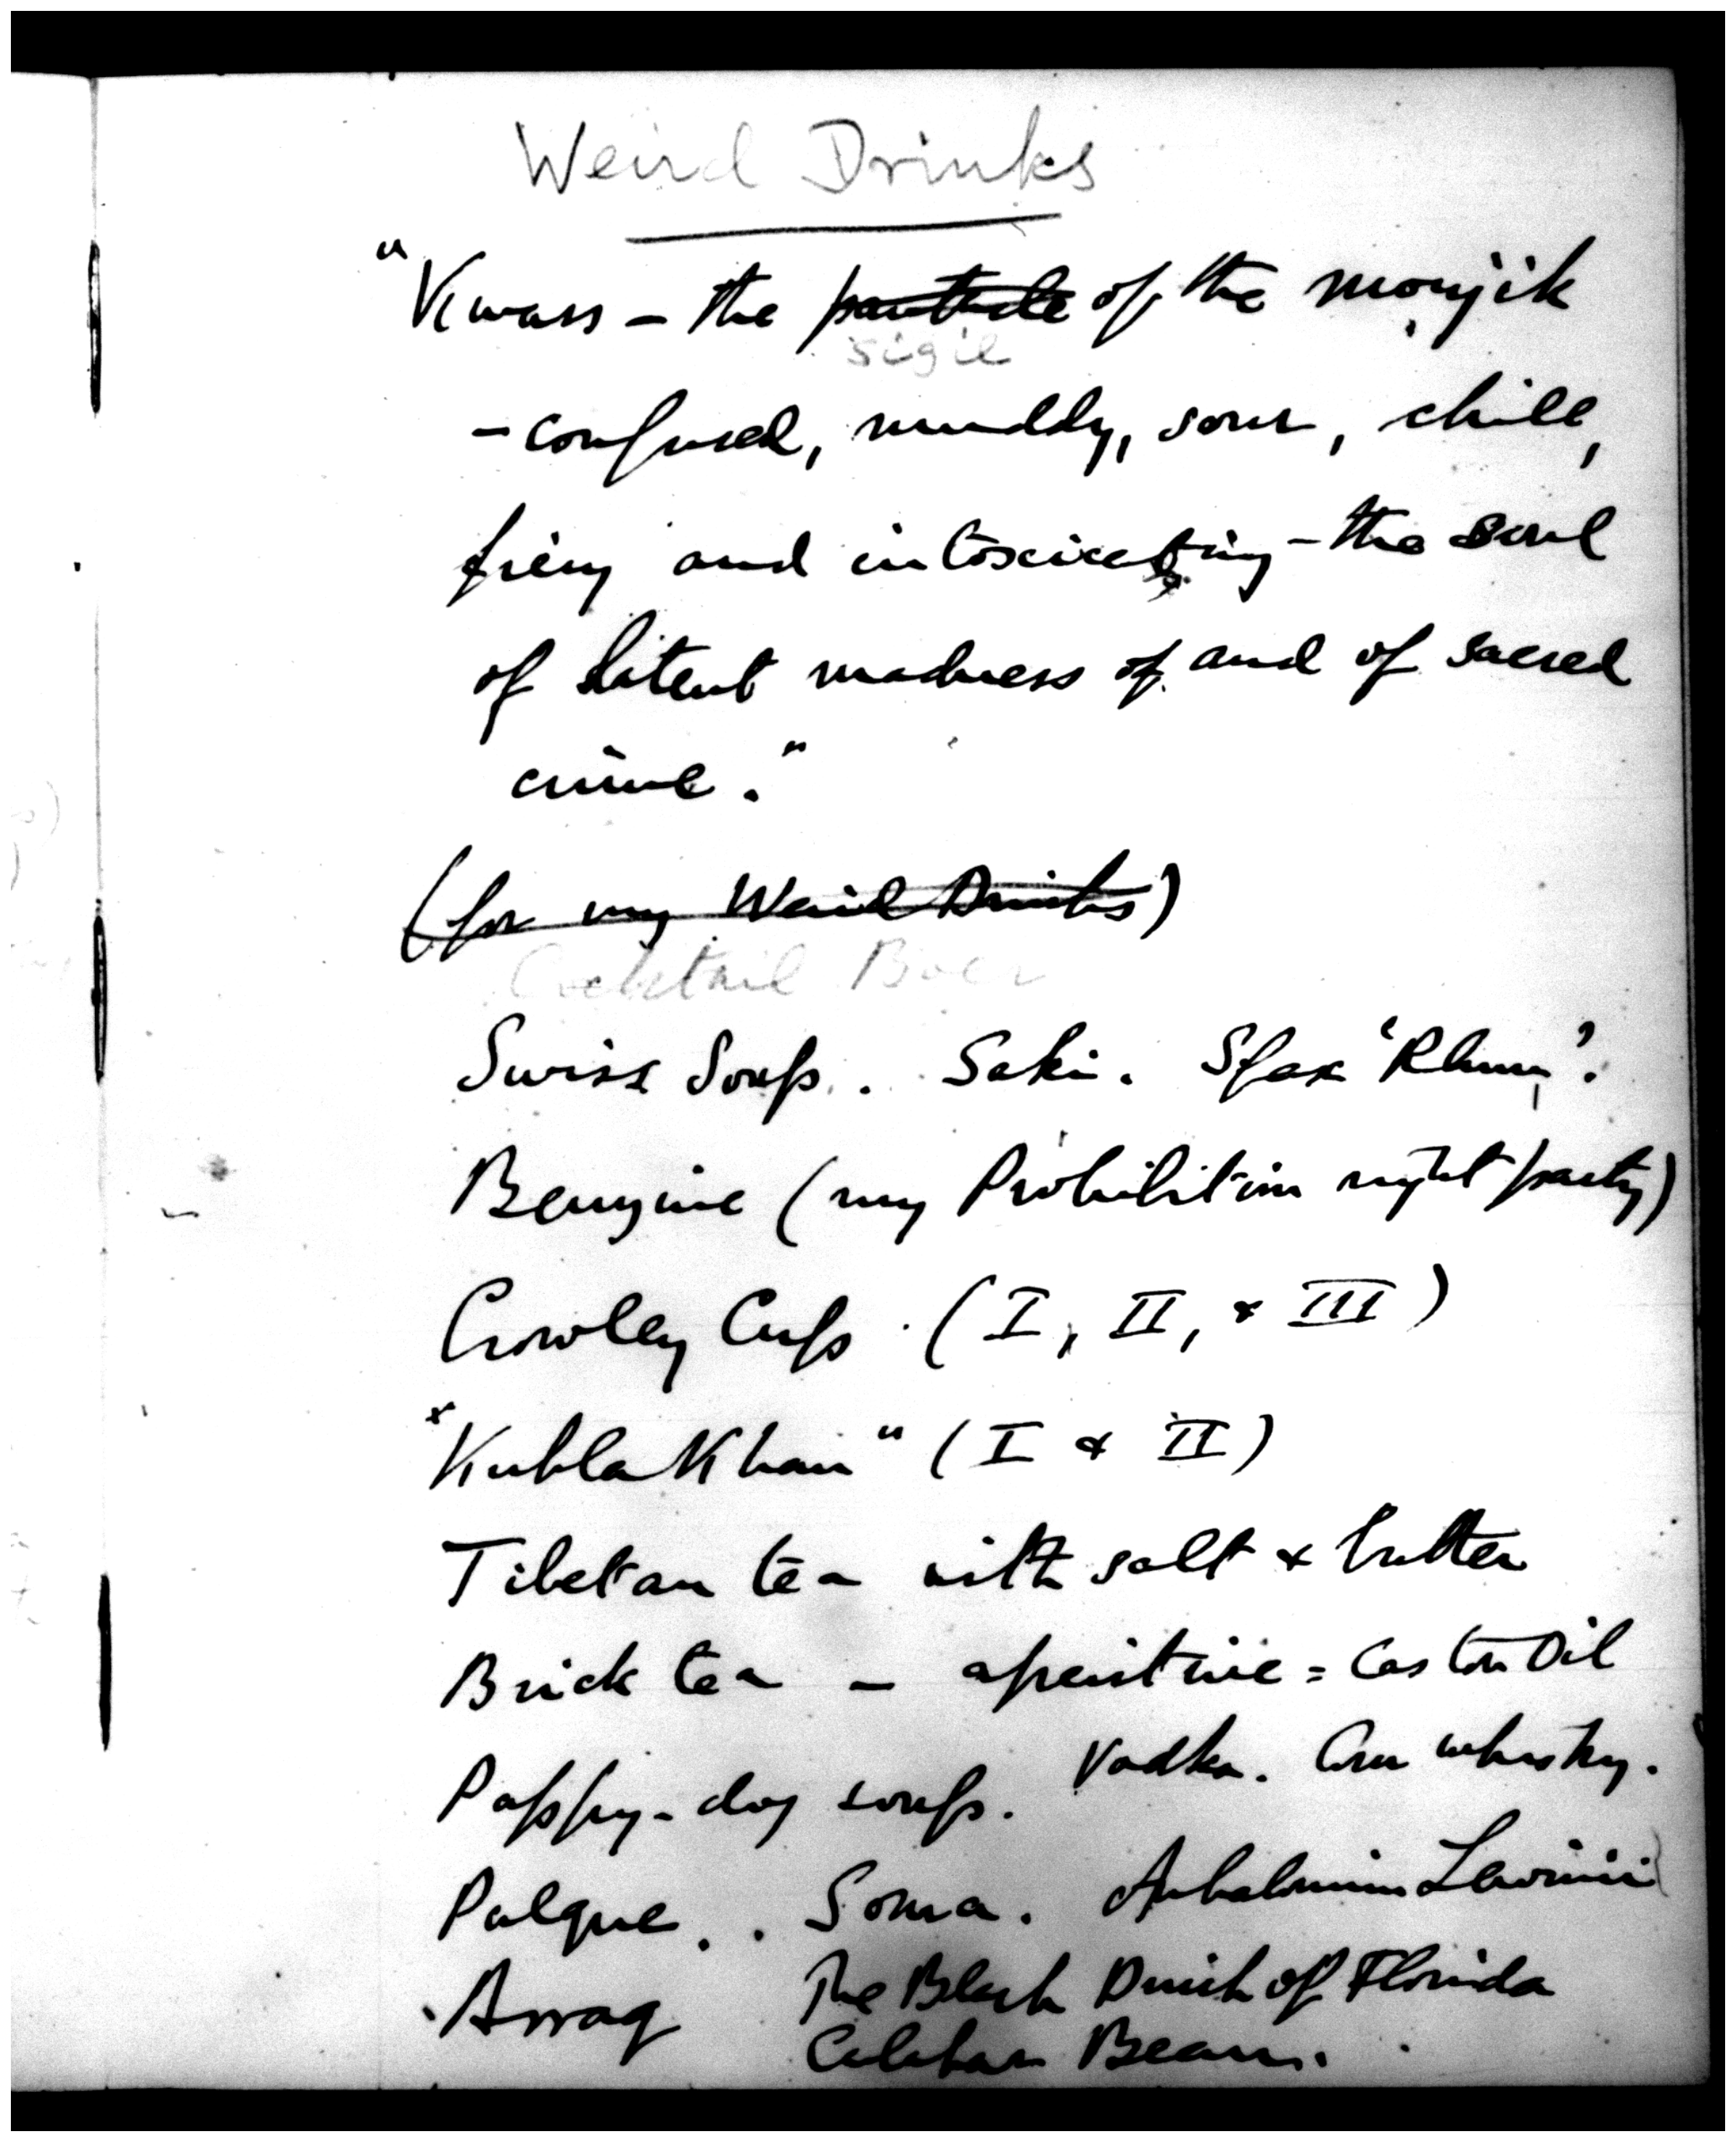 Weird Drinks
"Kwass – the of the moujik
sigil
– confused, muddy, sour, chill,
fiery and intoxicating – the soul
of latent madness of and of sacred
crime."
(for my Weird Drinks)
Cocktail
Swiss Soup. Saki. Sfax 'Rhum'.
Benzine (my Prohibition night party)
Crowley Cups. (I, II, & III)
"Kubla Khan" (I & II)
Tibetan tea with salt & butter
Brick tea – aperitive = Castor Oil
Poppy-dog soup. Vodka. Corn whisky.
Pulque. Soma. Anhalonium Lewinii
Arraq The Black Drink of Florida
Calabar Bean.